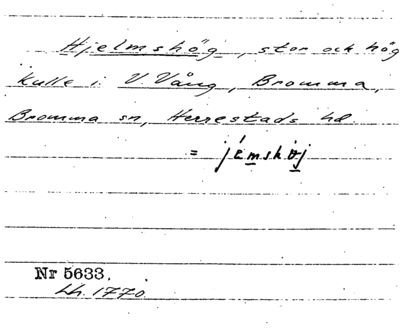 Hjelmshög, stor och hög
kulle i V. Vång, Bromma,
Bromma sn, Herrestads hd.
= jémskøj
Nr 5633.
Lh. 1770.